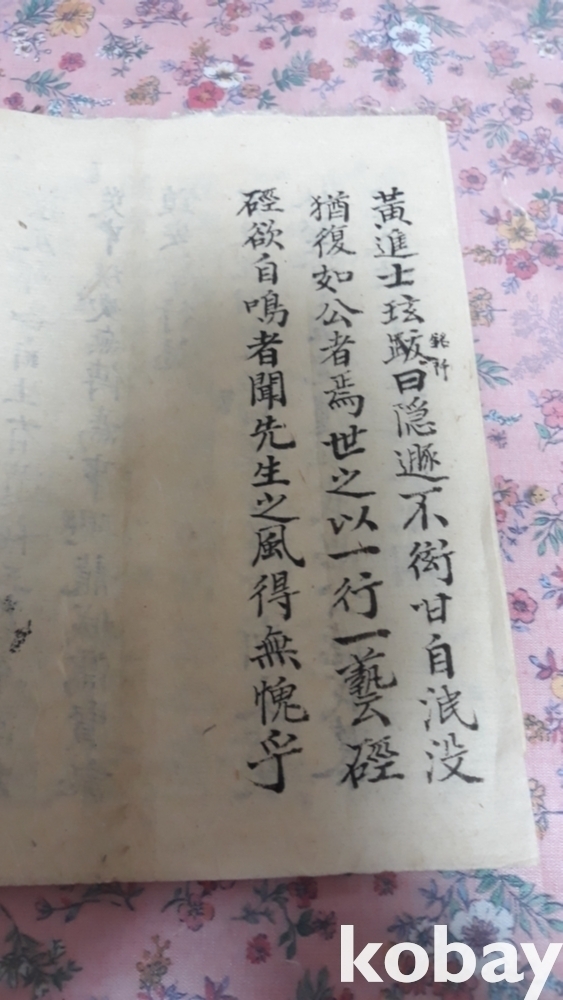 黃進士玹跋曰隐遯不衒甘自泯没
銘所
猶復如公者焉世之以一行一藝云硜
硜欲自鳴者聞先生之風得無愧乎
kobay